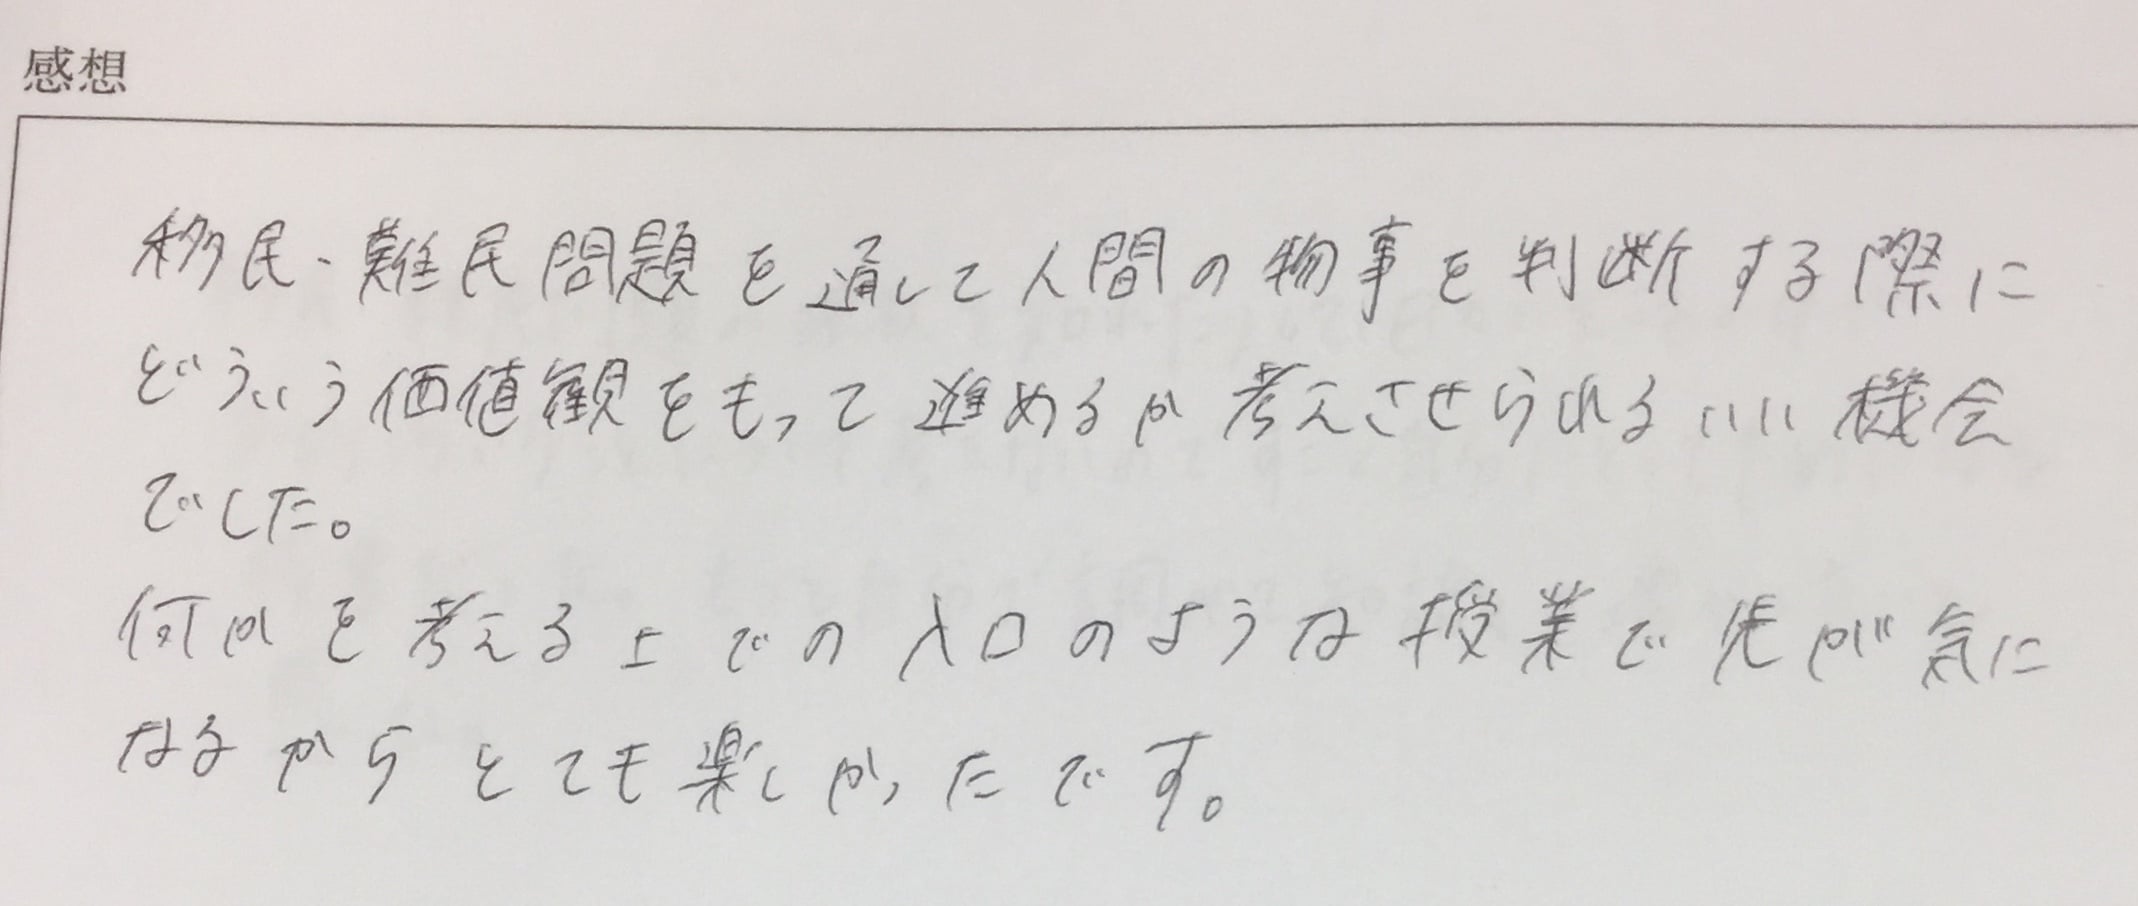 感想
移民・難民問題を通して人間の物事を判断する際に
どういう価値観をもって進めるか考えさせられるいい機会
でした。
何かを考える上での入口のような授業で先が気に
なるからとても楽しかったです。